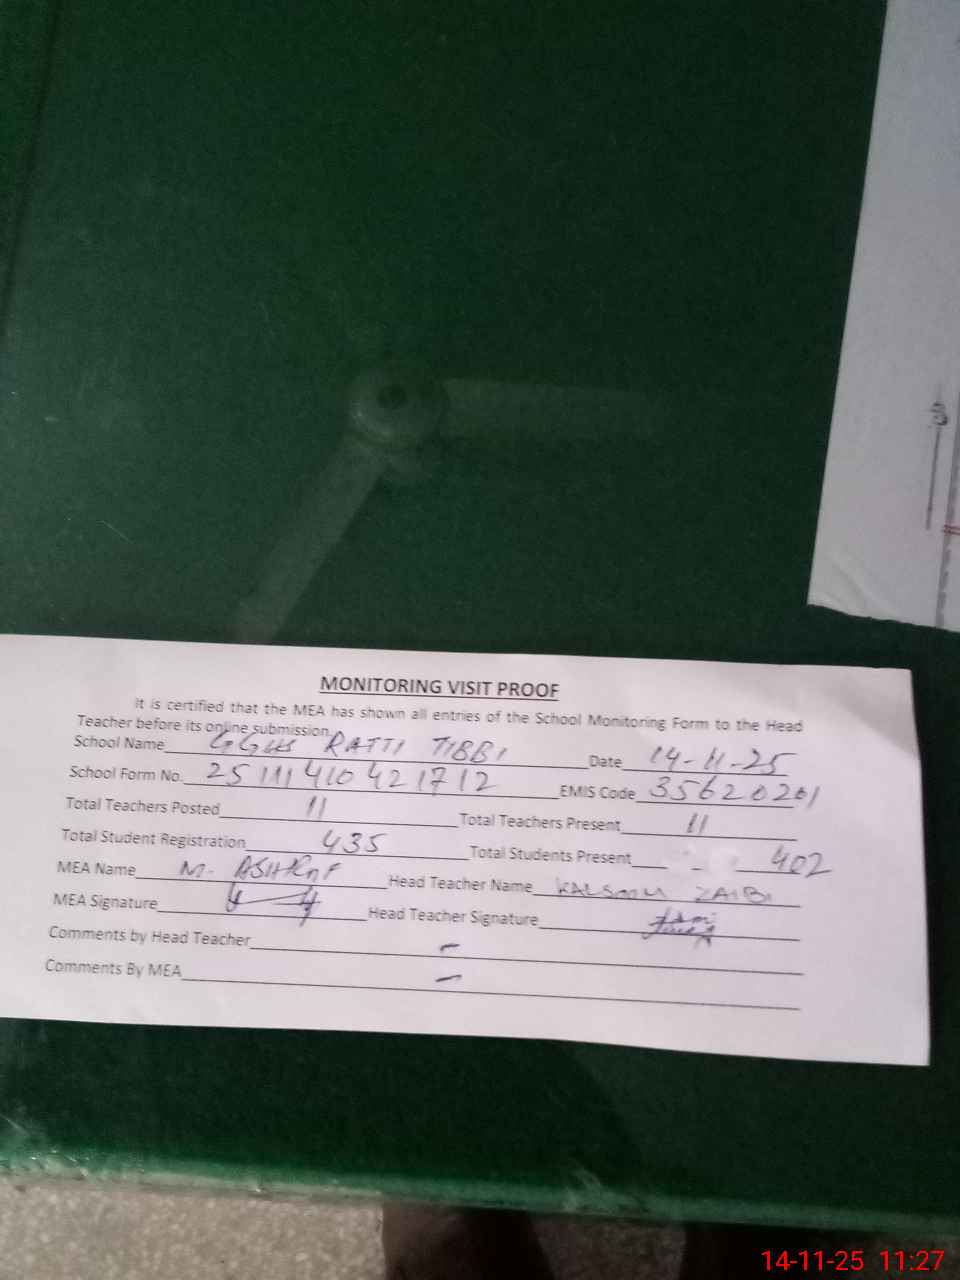 MONITORING VISIT PROOF
It is certified that the MEA has shown all entries of the School Monitoring Form to the Head
Teacher before its online submission.
School Name GGHS RATTI TIBBI Date 14-11-25
School Form No. 25111410421712 EMIS Code 35620201
Total Teachers Posted 11 Total Teachers Present 11
Total Student Registration 435 Total Students Present 402
MEA Name M. ASHRAF Head Teacher Name ZAIBI
MEA Signature Head Teacher Signature
Comments by Head Teacher -
Comments By MEA -
14-11-25 11:27